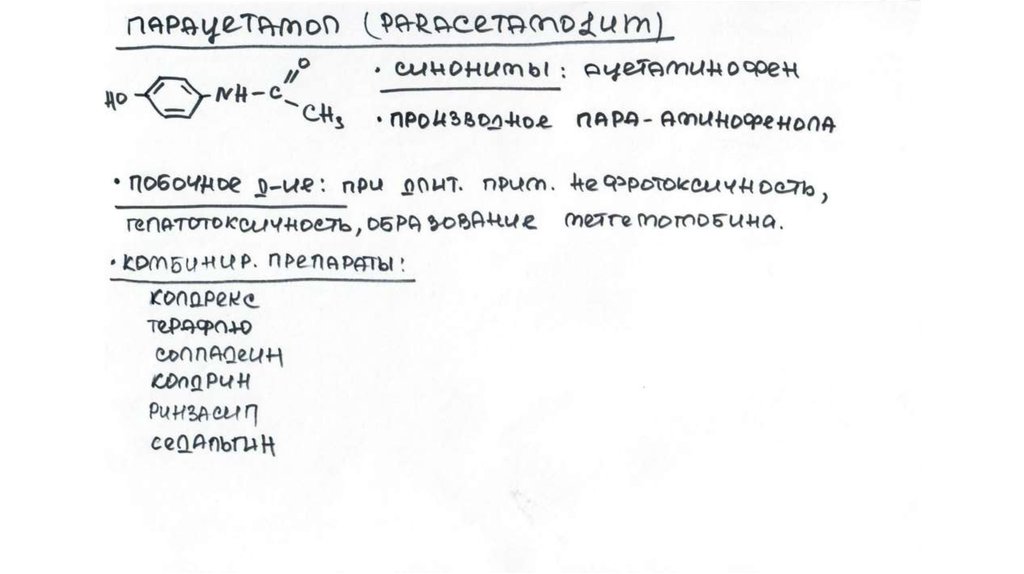 ПАРАЦЕТАМОЛ (PARACETAMOLUM)
HO NH-C O CH3
• СИНОНИМЫ: АЦЕТАМИНОФЕН
• ПРОИЗВОДНОЕ ПАРА-АМИНОФЕНОЛА
• ПОБОЧНОЕ Д-ИЕ: ПРИ ДЛИТ. ПРИМ. НЕФРОТОКСИЧНОСТЬ,
ГЕПАТОТОКСИЧНОСТЬ, ОБРАЗОВАНИЕ МЕТГЕМОГОБИНА.
• КОМБИНИР. ПРЕПАРАТЫ:
КОЛДРЕКС
ТЕРАФЛЮ
СОЛПАДЕИН
КОЛДРИН
РИНЗАСИП
СЕДАЛЬГИН